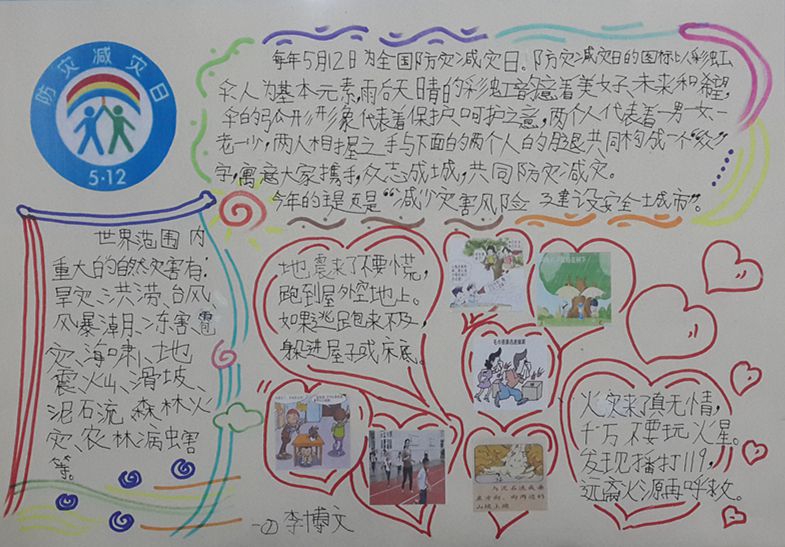 防灾减灾日
5·12
每年5月12日为全国防灾减灾日。防灾减灾日的图标以彩虹
伞人为基本元素,雨后天晴的彩虹韵意着美好、未来和希望,
伞的弓形形象代表着保护、呵护之意,两个人代表着一男一女、一
老一少,两人相握之手与下面的两个人的腿共同构成一个“众”
字,寓意大家携手,众志成城,共同防灾减灾。
今年的主题是“减少灾害风险 建设安全城市”。
世界范围内
重大的自然灾害有:
旱灾、洪涝、台风、
风暴潮、冻害、雹
灾、海啸、地
震、火山、滑坡、
泥石流、森林火
灾、农林病虫害
等。
地震来了不要慌,
跑到屋外空地上。
如果逃跑来不及,
躲进屋子或床底。
火灾来了真无情,
千万不要玩火星。
发现播打119,
远离火源再呼救。
一④ 李博文